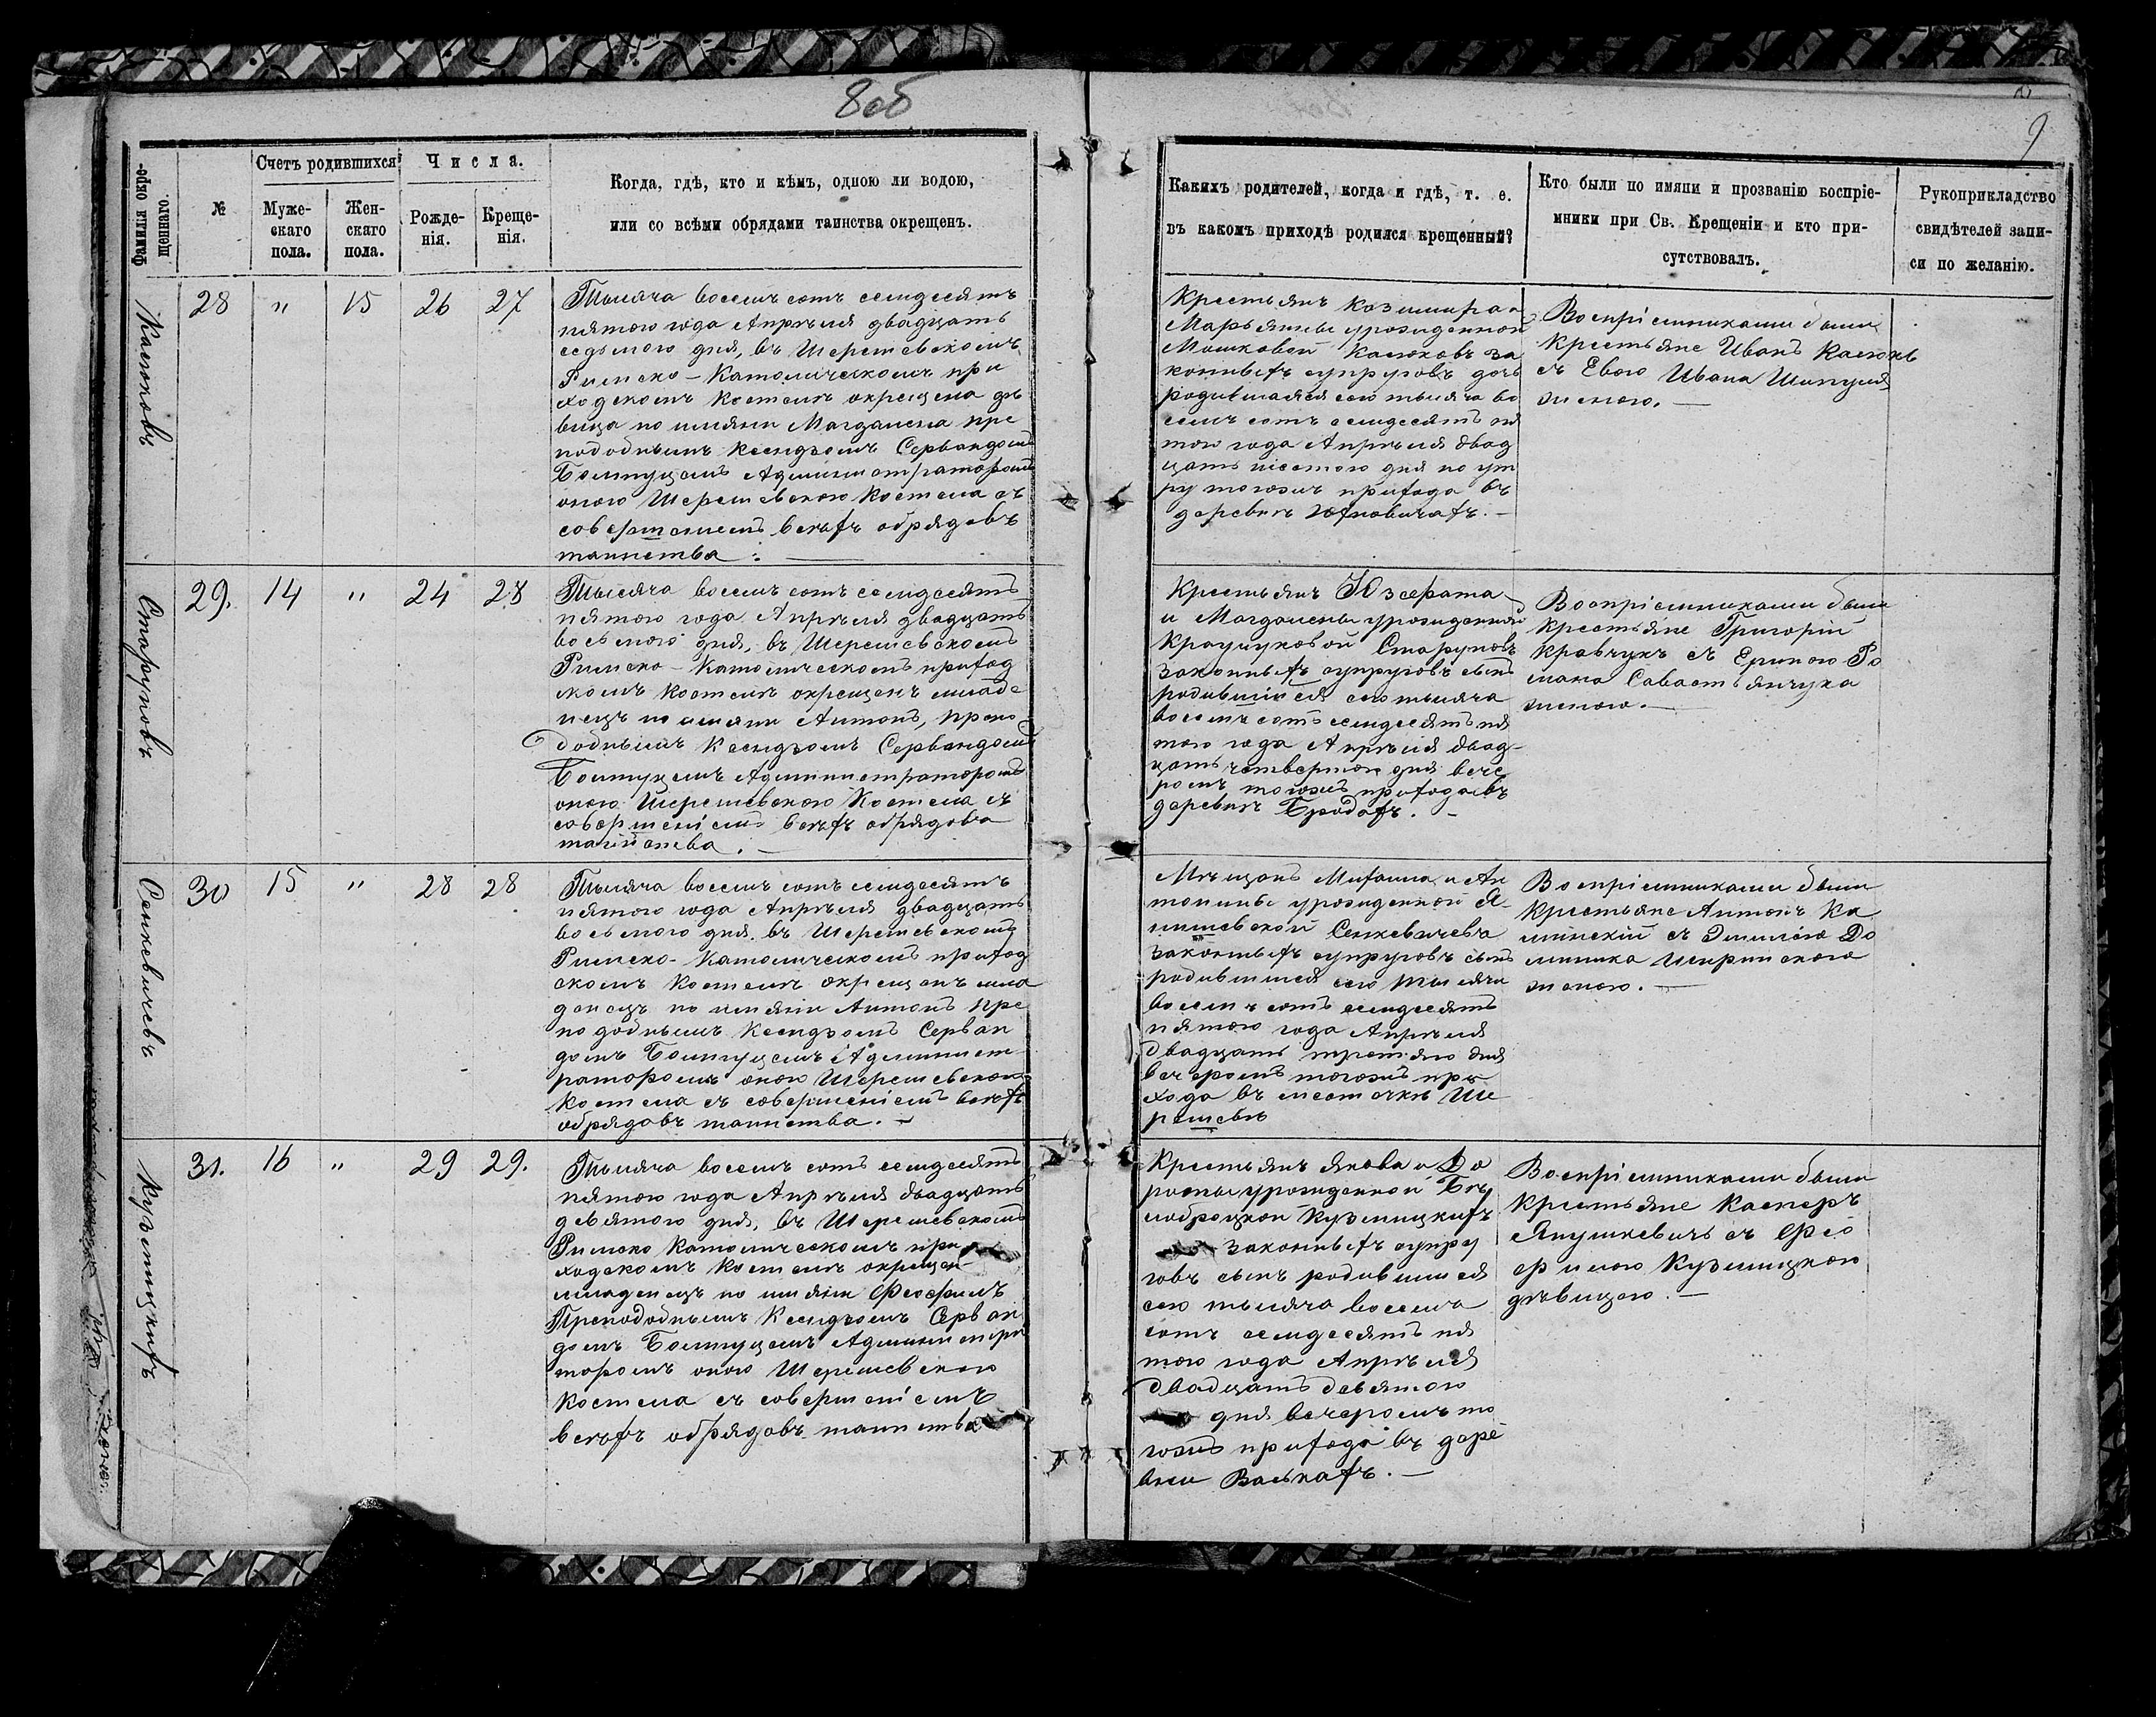 8об
9
Фамилія окре-
щеннаго.
№
Счетъ родившихся
Муже-
скаго
пола.
Жен-
скаго
пола.
Числа.
Рожде-
нія.
Креще-
нія.
Когда, гдѣ, кто и кѣмъ, одною ли водою,
или со всѣми обрядами таинства окрещенъ.
Какихъ родителей, когда и гдѣ, т. е.
въ какомъ приходѣ родился крещенный?
Кто были по имяни и прозванію воспріе-
мники при Св. Крещеніи и кто при-
сутствовалъ.
Рукоприкладство
свидѣтелей запи-
си по желанію.
Калюковъ
28 " 15 26 27
Тысяча восемь сотъ семидесятъ
пятого года Апрѣля двадцать
седьмого дня, въ Шерешевскомъ
Римско-Католическомъ при
ходскомъ костелѣ окрещена дѣ
вица по имяни Магдалена пре
подобнымъ Ксендзомъ Сервандомъ
Болтуцемъ Администраторомъ
оного Шерешевского Костела съ
совершенiемъ всѣхъ обрядовъ
таинства:
Крестьянъ Казимира и
Марьянны урожденной
Мошковой Калюковъ за
конныхъ супруговъ дочь
родившаяся сего тысяча во
семь сотъ семидесятъ пя
того года Апрѣля двад
цать шестого дня по ут
ру тогожъ прихода въ
деревнѣ Юхновичахъ.-
Воспріемниками были
Крестьяне Иванъ Калюкъ
съ Евою Ивана Шипуля
женою.-
Старуновъ
29. 14 " 24 28
Тысяча восемь сотъ семидесятъ
пятого года Апрѣля двадцать
восьмого дня, въ Шерешевскомъ
Римско-Католическомъ приход
скомъ костелѣ окрещенъ младе
нецъ по имяни Антонъ, препо
добнымъ Ксендзомъ Сервандомъ
Болтуцемъ Администраторомъ
оного Шерешевского Костела съ
совершеніемъ всѣхъ обрядовъ
таинства.-
Крестьянъ Юзефата
и Магдалены урожденной
Кравчуковой Старуновъ
законныхъ супруговъ сынъ
родившійся сего тысяча
восемь сотъ семидесятъ пя
того года Апрѣля двад-
цать четвертого дня вече
ромъ тогожъ прихода въ
деревнѣ Бродахъ.-
Воспріемниками были
Крестьяне Григорій
Кравчукъ съ Ериною Ро
мана Савастьянчука
женою.-
Сенкевичевъ
30 15 " 28 28
Тысяча восемь сотъ семидесятъ
пятого года Апрѣля двадцать
восьмого дня. въ Шерешевскомъ
Римско-Католическомъ приход
скомъ костелѣ окрещенъ мла
денецъ по имяни Антонъ пре
подобнымъ Ксендзомъ Серван
домъ Болтуцемъ Админист
раторомъ оного Шерешевского
Костела съ совершеніемъ всѣхъ
обрядовъ таинства.-
Мѣщанъ Михаила и Ан
тонины урожденной Я
нишевской Сенкевичевъ
законныхъ супруговъ сынъ
родившися сего тысяча
восемь сотъ семидесятъ
пятого года Апрѣля
двадцать третяго дня
вечеромъ тогожъ при
хода въ местечкѣ Ше
решевѣ
Воспріемниками были
Крестьяне Антонъ Ка
минскій съ Эмилію До
миника
женою.-
Кузмицкихъ
31. 16 " 29 29.
Тысяча восемь сотъ семидесятъ
пятого года Апрѣля двадцать
девятого дня, въ Шерешевскомъ
Римско Католическомъ при
ходскомъ костелѣ окрещен
младенецъ по имяни Феофилъ
Преподобнымъ Ксендзомъ Серван
домъ Болтуцемъ Администра
торомъ оного Шерешевского
Костела съ совершеніемъ
всѣхъ обрядовъ таинства
Крестьянъ Якова и До
роты урожденной Бѣ
лобродкой Кузмицкихъ
законныхъ супру
говъ сынъ родившися
сего тысяча восемь
сотъ семидесятъ пя
того года Апрѣля
двадцать девятого
дня вечеромъ то
гожъ прихода въ дере
вни Валькахъ.-
Воспріемниками были
Крестьяне Касперъ
Янушкевичъ съ Фео
филою Кузмицкою
дѣвицею.-